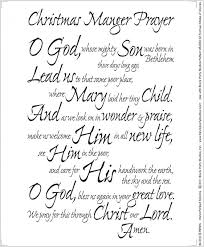 Christmas Manger Prayer
O God, whose mighty Son was born in Bethlehem
those days long ago,
Lead us to that same poor place,
where Mary laid her tiny Child.
And as we look on in wonder & praise,
make us welcome Him in all new life,
see Him in the poor,
and care for His handiwork the earth,
the sky and the sea.
O God, bless us again in your great love.
We pray for this through Christ our Lord.
Amen.